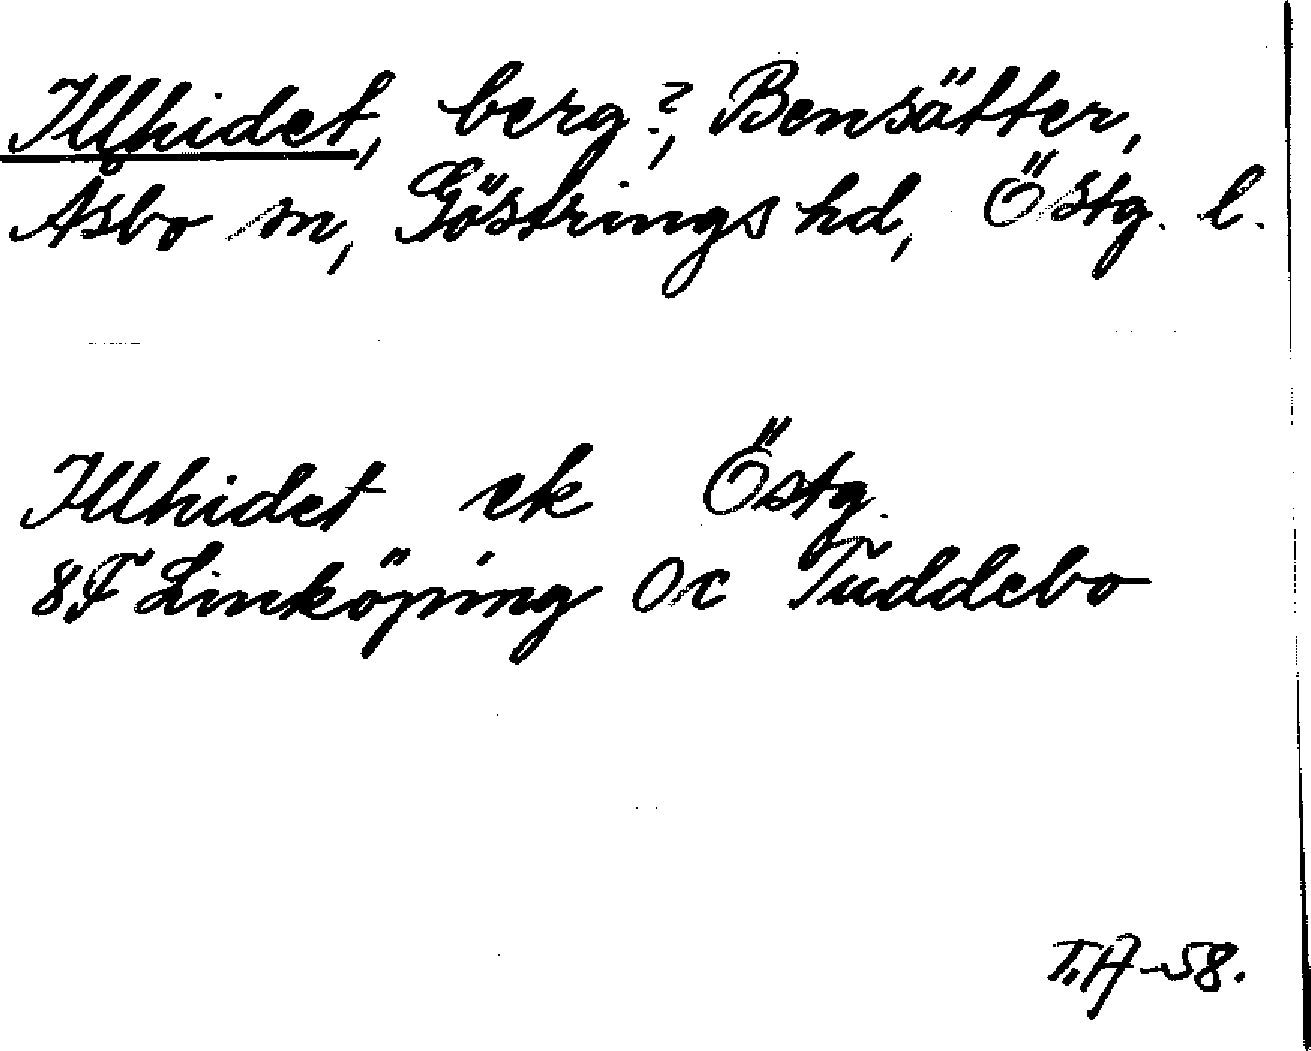 Illhidet, berg?, Bensätter,
Åsbo sn, Göstrings hd, Östg. l.
Illhidet ek Östg.
8F Linköping 0c Tuddebo
T.A-58.